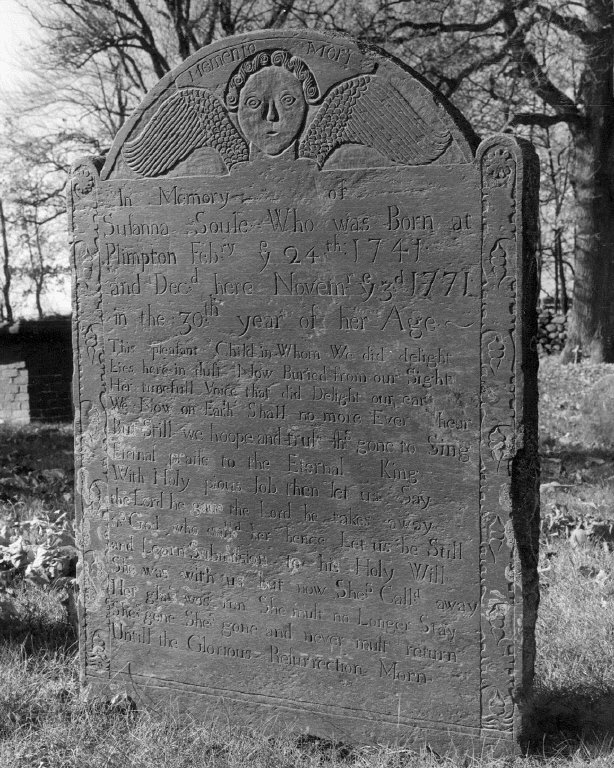 Memento Mori
In Memory of
Suſanna Soule Who was Born at
Plimpton Febry ye 24th 1741
and Decd here Novemr ye 3d 1771
in the 30th year of her Age
This pleaſant Child in Whom We did delight
Lies here in duſt Now Buried from our Sight
Her tunefull Voice that did Delight our ear
We Now on Earth Shall no more Ever hear
But Still we hoope and truſt ſhes gone to Sing
Eternal praiſe to the Eternal King
With Holy pious Job then let us Say
the Lord he gave the Lord he takes away
God who calld her hence Let us be Still
and Learn Submiſsion to his Holy Will
She was with us but now Shes Calld away
Her glaſs was run She muſt no Longer Stay
Shes gone Shes gone and never muſt return
Untill the Glorious Reſurrection Morn